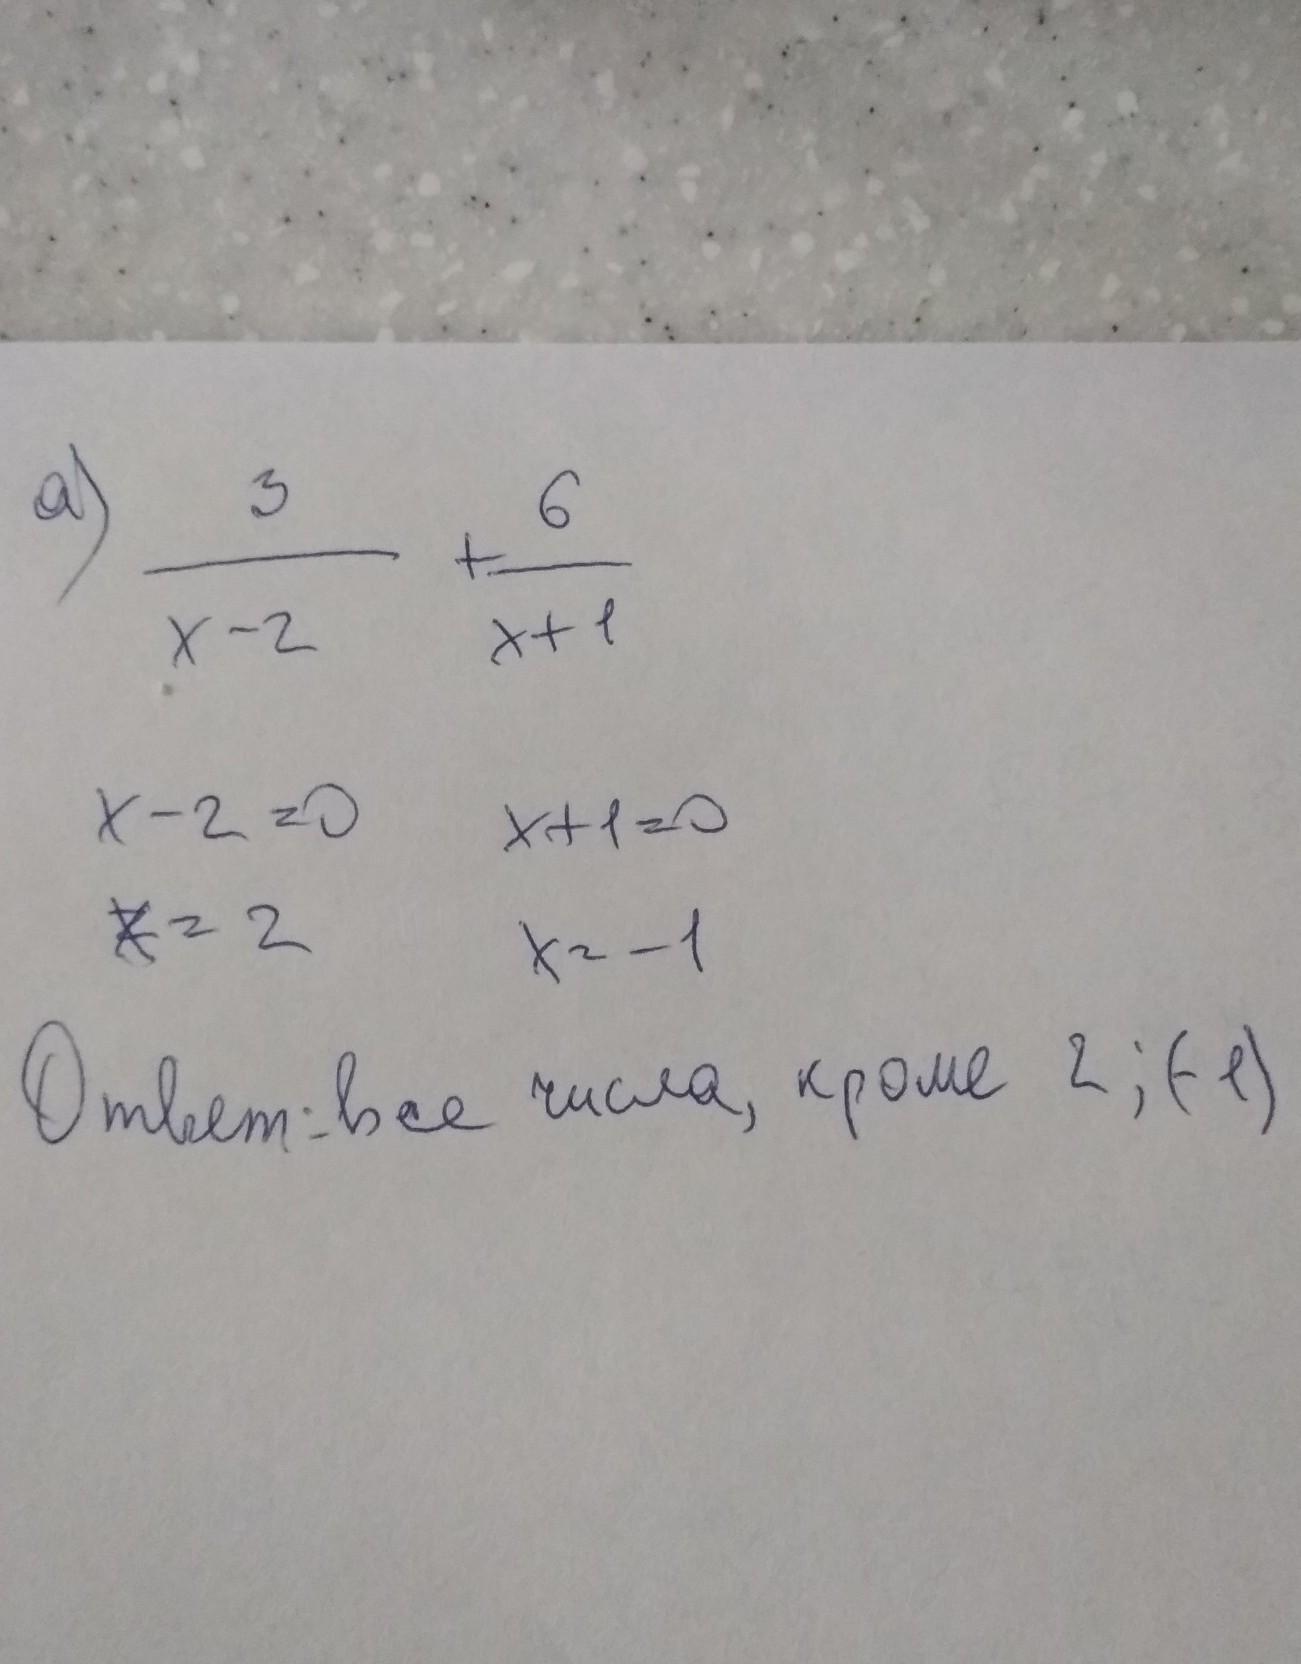 а) 3/(x-2) + 6/(x+1)
x-2=0 x+1=0
x=2 x=-1
Ответ: все числа, кроме 2; (-1)